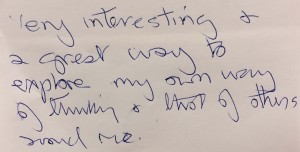 Very interesting &
a great way to
explore my own way
of thinking & that of others
around me.